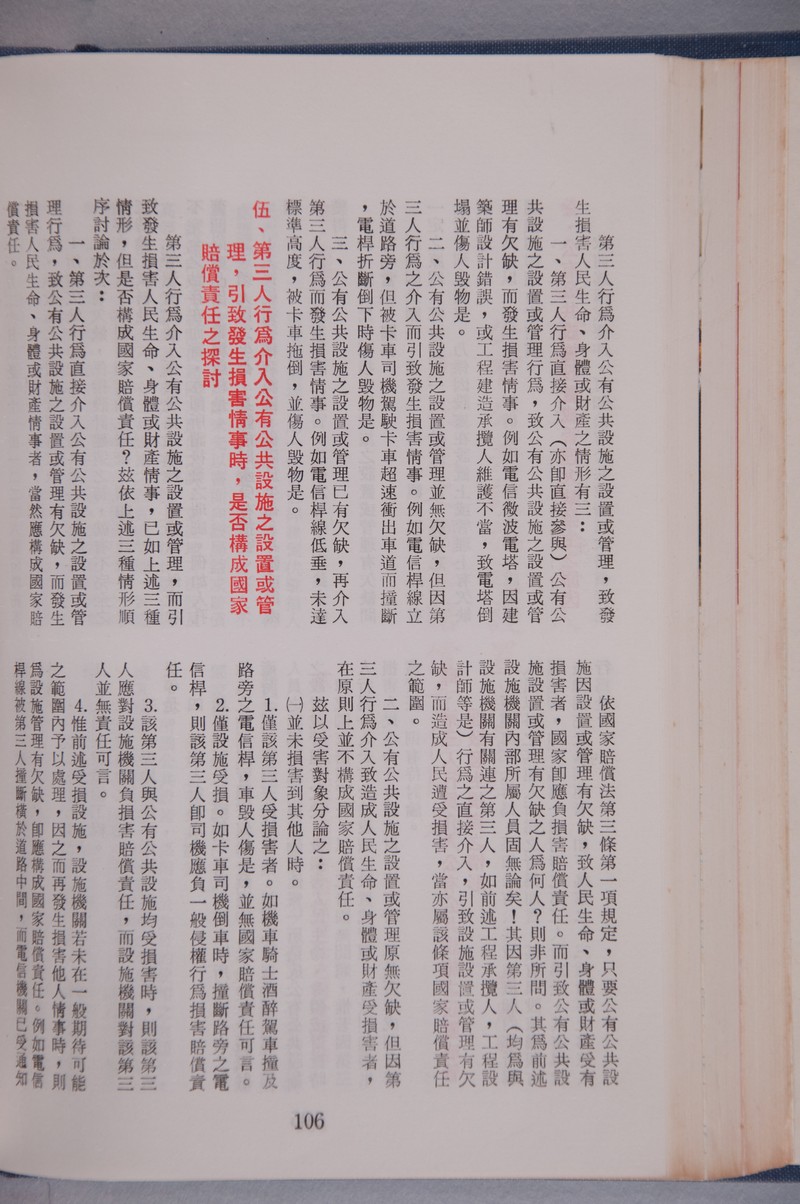 第三人行爲介入公有公共設施之設置或管理，致發
生損害人民生命、身體或財產之情形有三：
一、第三人行爲直接介入（亦卽直接參與）公有公
共設施之設置或管理行爲，致公有公共設施之設置或管
理有欠缺，而發生損害情事。例如電信微波電塔，因建
築師設計錯誤，或工程建造承攬人維護不當，致電塔倒
塌並傷人毀物是。
二、公有公共設施之設置或管理並無欠缺，但因第
三人行爲之介入而引致發生損害情事。例如電信桿線立
於道路旁，但被卡車司機駕駛卡車超速衝出車道而撞斷
，電桿折斷倒下時傷人毀物是。
三、公有公共設施之設置或管理已有欠缺，再介入
第三人行爲而發生損害情事。例如電信桿線低垂，未達
標準高度，被卡車拖倒，並傷人毀物是。
伍、第三人行爲介入公有公共設施之設置或管
理，引致發生損害情事時，是否構成國家
賠償責任之探討
第三人行爲介入公有公共設施之設置或管理，而引
致發生損害人民生命、身體或財產情事，已如上述三種
情形，但是否構成國家賠償責任？玆依上述三種情形順
序討論於次：
一、第三人行爲直接介入公有公共設施之設置或管
理行爲，致公有公共設施之設置或管理有欠缺，而發生
損害人民生命、身體或財產情事者，當然應構成國家賠
償責任。
依國家賠償法第三條第一項規定，只要公有公共設
施因設置或管理有欠缺，致人民生命、身體或財產受有
損害者，國家卽應負損害賠償責任。而引致公有公共設
施設置或管理有欠缺之人爲何人？則非所問。其爲前述
設施機關內部所屬人員固無論矣！其因第三人（均爲與
設施機關有關連之第三人，如前述工程承攬人，工程設
計師等是）行爲之直接介入，引致設施設置或管理有欠
缺，而造成人民遭受損害，當亦屬該條項國家賠償責任
之範圍。
二、公有公共設施之設置或管理原無欠缺，但因第
三人行爲介入致造成人民生命、身體或財產受損害者，
在原則上並不構成國家賠償責任。
玆以受害對象分論之：
㈠並未損害到其他人時。
1.僅該第三人受損害者。如機車騎士酒醉駕車撞及
路旁之電信桿，車毀人傷是，並無國家賠償責任可言。
2.僅設施受損。如卡車司機倒車時，撞斷路旁之電
信桿，則該第三人卽司機應負一般侵權行爲損害賠償責
任。
3.該第三人與公有公共設施均受損害時，則該第三
人應對設施機關負損害賠償責任，而設施機關對該第三
人並無責任可言。
4.惟前述受損設施，設施機關若未在一般期待可能
之範圍內予以處理，因之而再發生損害他人情事時，則
爲設施管理有欠缺，卽應構成國家賠償責任。例如電信
桿線被第三人撞斷橫於道路中間，而電信機關已受通知
106